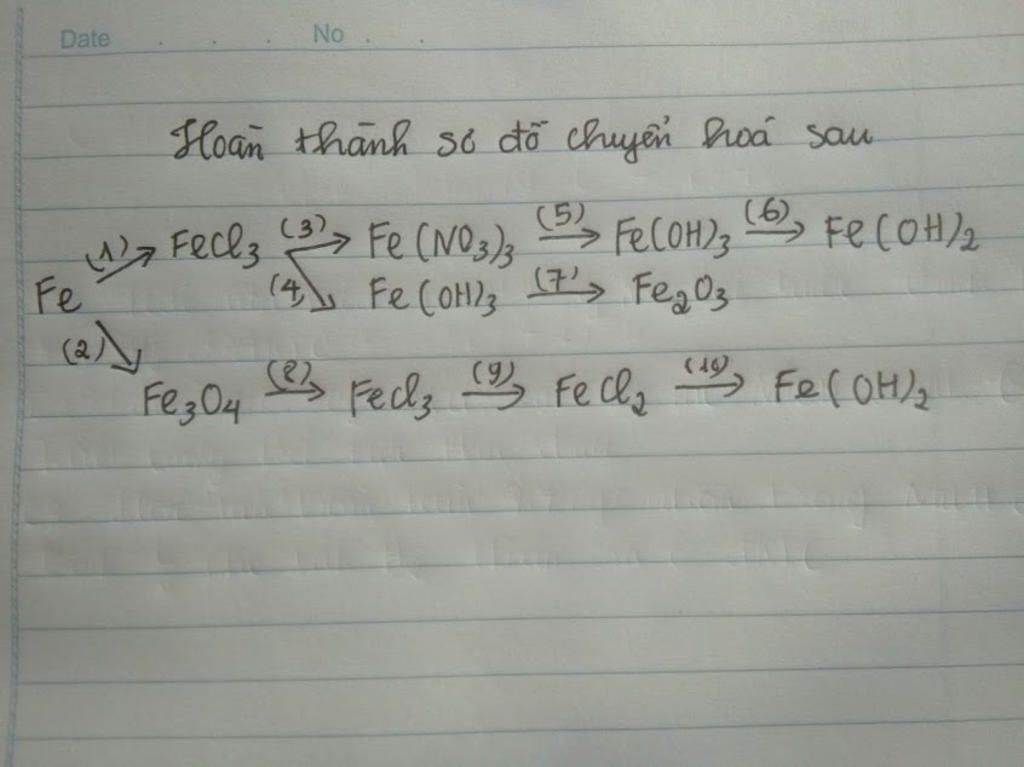 Date . . . No . .
Hoàn thành sơ đồ chuyển hoá sau
(1) FeCl3 (3) Fe(NO3)3 (5) Fe(OH)3 (6) Fe(OH)2
Fe (4) Fe(OH)3 (7) Fe2O3
(2) Fe3O4 (8) FeCl3 (9) FeCl2 (10) Fe(OH)2